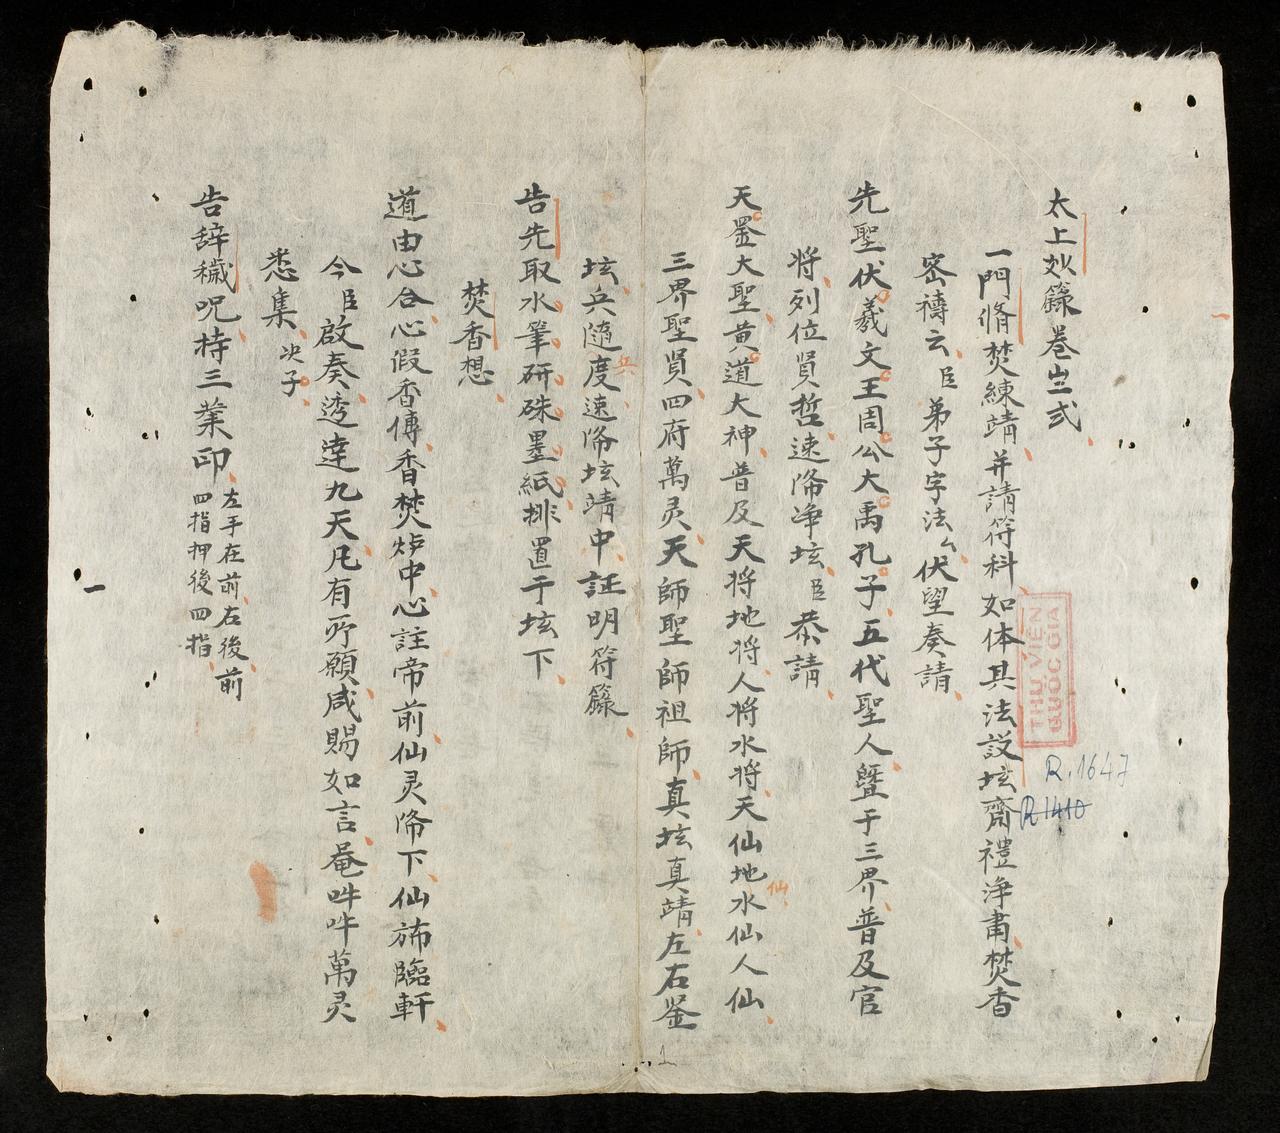 太上妙籙卷岀弍
一門脩焚練靖并請符科如体具法設坛齋禮淨肅焚香
密禱云臣弟子字法厶伏望奏請
先聖伏羲文王周公大禹孔子五代聖人曁于三界普及官
將列位賢哲速降净坛臣恭請
天垕大聖黄道大神普及天將地將人將水將天仙地水仙人仙
仙
三界聖賢四府萬灵天師聖師祖師真坛真靖左右鉴
坛兵隨度速降坛靖中証明符籙
兵
告先取水筆研硃墨紙排置于坛下
焚香想
道由心合心假香傳香焚炉中心註帝前仙灵降下仙斾臨軒
今臣啟奏透達九天凡有所願咸賜如言奄吽吽萬灵
悉集决子
告辞穢呪持三業印左手在前右後前
四指押後四指
THƯ VIỆN
QUỐC GIA
R.1647
R1410
1